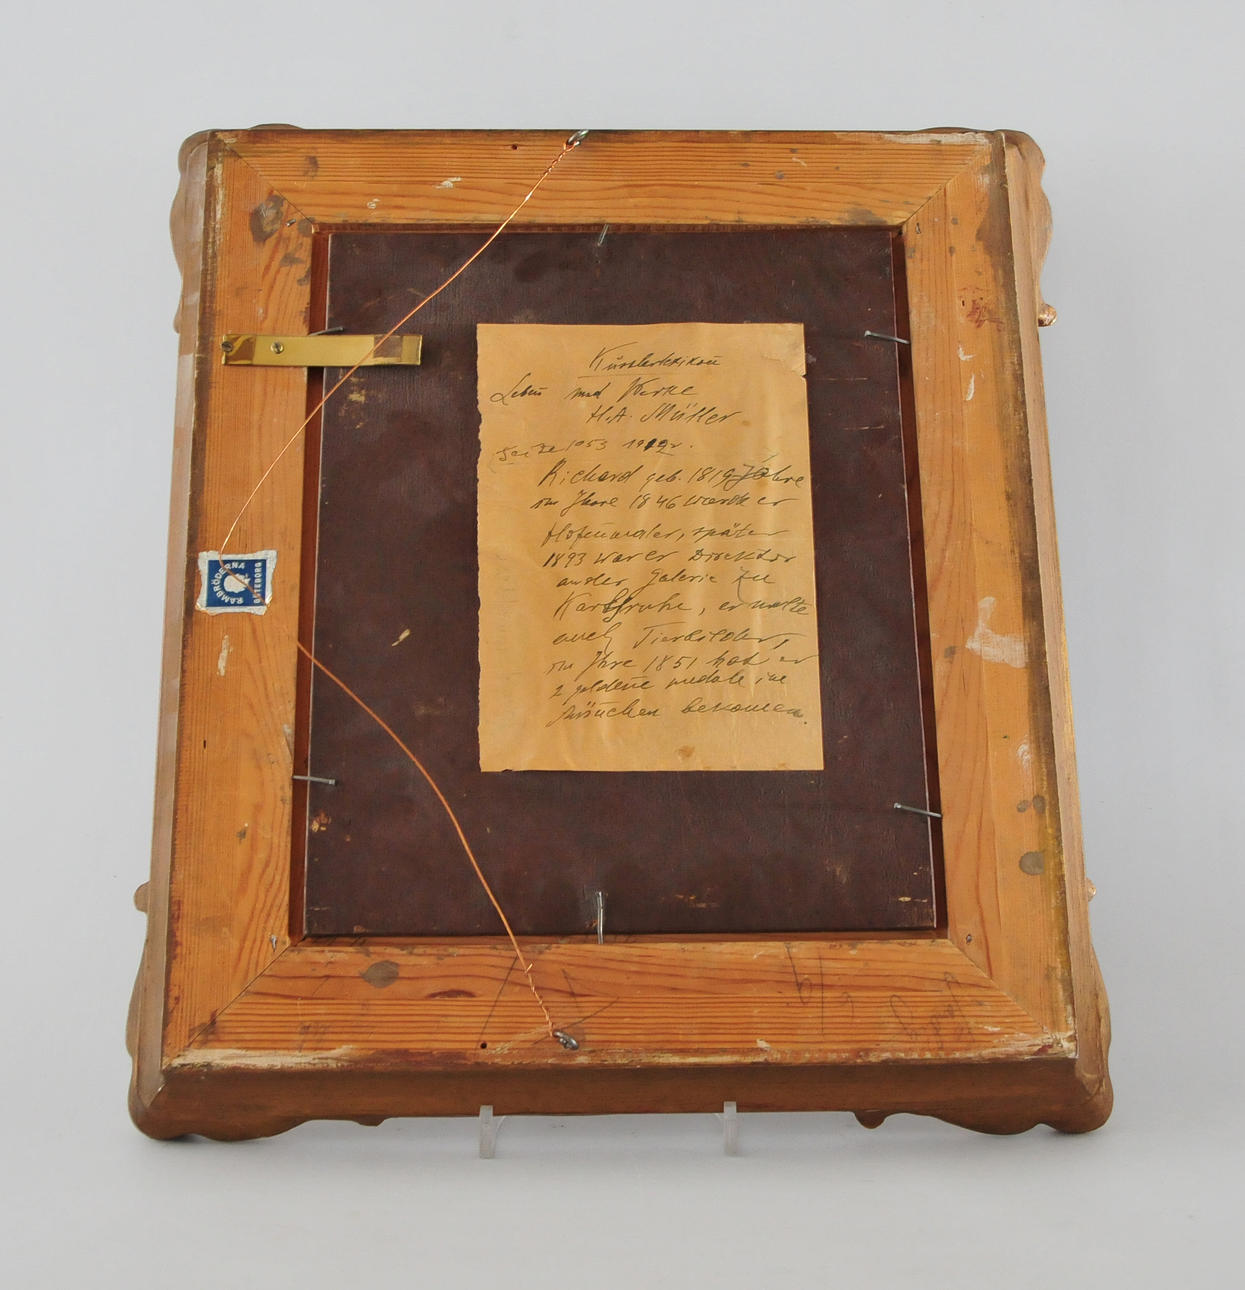 Künstlerlexikon
Leben und Werke
H.A. Müller
Seite 1053 1912.
Richard geb. 1819 Jahre
im Jhare 1846 wurde er
später
1893 war er Direktor
an der Galerie zu
Karlsruhe, er malte
auch Tierbilder,
im Jhre 1851 hat er
2 goldene medale in
bekomen.
RAMBRÖDERNA
GÖTEBORG